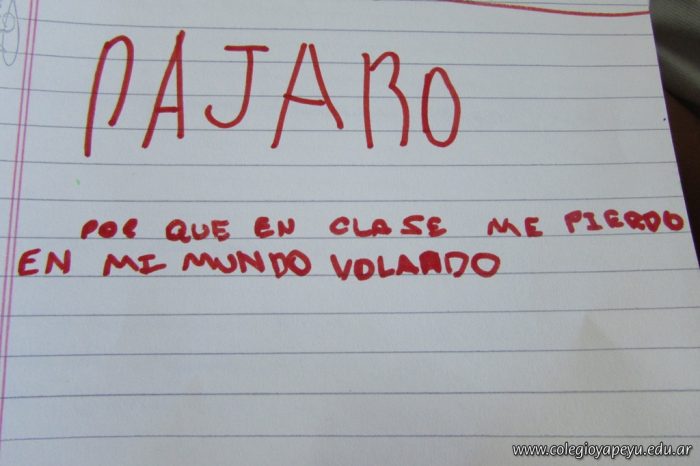 PAJARO
POR QUE EN CLASE ME PIERDO
EN MI MUNDO VOLANDO
www.colegioyapeyu.edu.ar